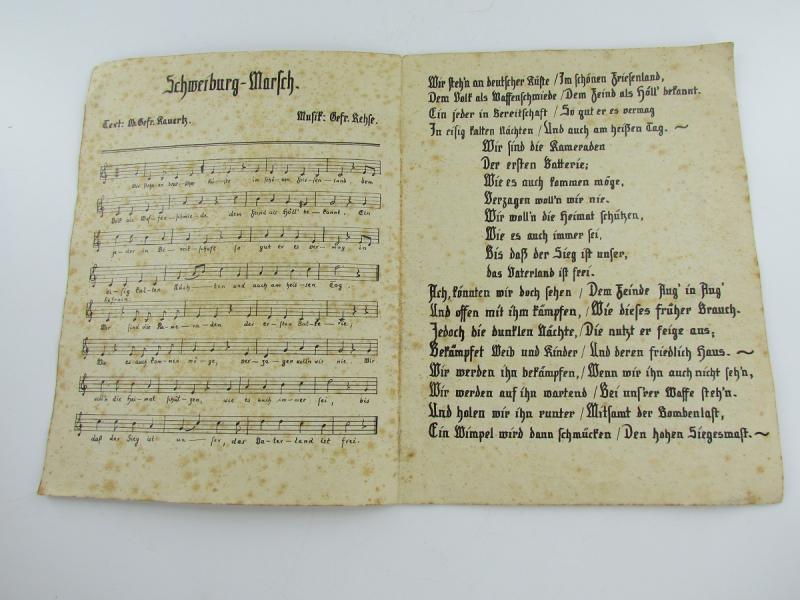 Schweiburg-Marsch.
Text: Gefr. Kauertz. Musik: Gefr. Rehse.
Wir stehn an deutscher Kü-ste im schö-nen Frie-sen-land, dem
Volk als Waf-fen-schmie-de. dem Feind als Höll' be-kannt. Ein
je-der in Be-reit-schaft so gut er es ver-mag in
ei-sig kal-ten Näch-ten und auch am heis-sen Tag.
Refrain
Wir sind die Ka-me-ra-den der er-sten Bat-te-rie;
es auch kom-men mö-ge, ver-za-gen woll'n wir nie. Wir
woll'n die Hei-mat schüt-zen, wie es auch im-mer sei, bis
daß der Sieg ist un-ser, das Va-ter-land ist frei.
Wir steh'n an deutscher Küste / Im schönen Friesenland,
Dem Volk als Waffenschmiede / Dem Feind als Höll' bekannt.
Ein jeder in Bereitschaft / So gut er es vermag
In eisig kalten Nächten / Und auch am heißen Tag. ~
Wir sind die Kameraden
Der ersten Batterie;
Wie es auch kommen möge,
Verzagen woll'n wir nie.
Wir woll'n die Heimat schützen,
Wie es auch immer sei,
Bis daß der Sieg ist unser,
das Vaterland ist frei.
Ach, könnten wir doch sehen / Dem Feinde Aug' in Aug'
Und offen mit ihm kämpfen, / Wie dieses früher Brauch.
Jedoch die dunklen Nächte, / Die nutzt er feige aus;
Bekämpfet Weib und Kinder / Und deren friedlich Haus. ~
Wir werden ihn bekämpfen, / Wenn wir ihn auch nicht seh'n,
Wir werden auf ihn wartend / Bei uns'rer Waffe steh'n.
Und holen wir ihn runter / Mitsamt der Bombenlast,
Ein Wimpel wird dann schmücken / Den hohen Siegesmast. ~